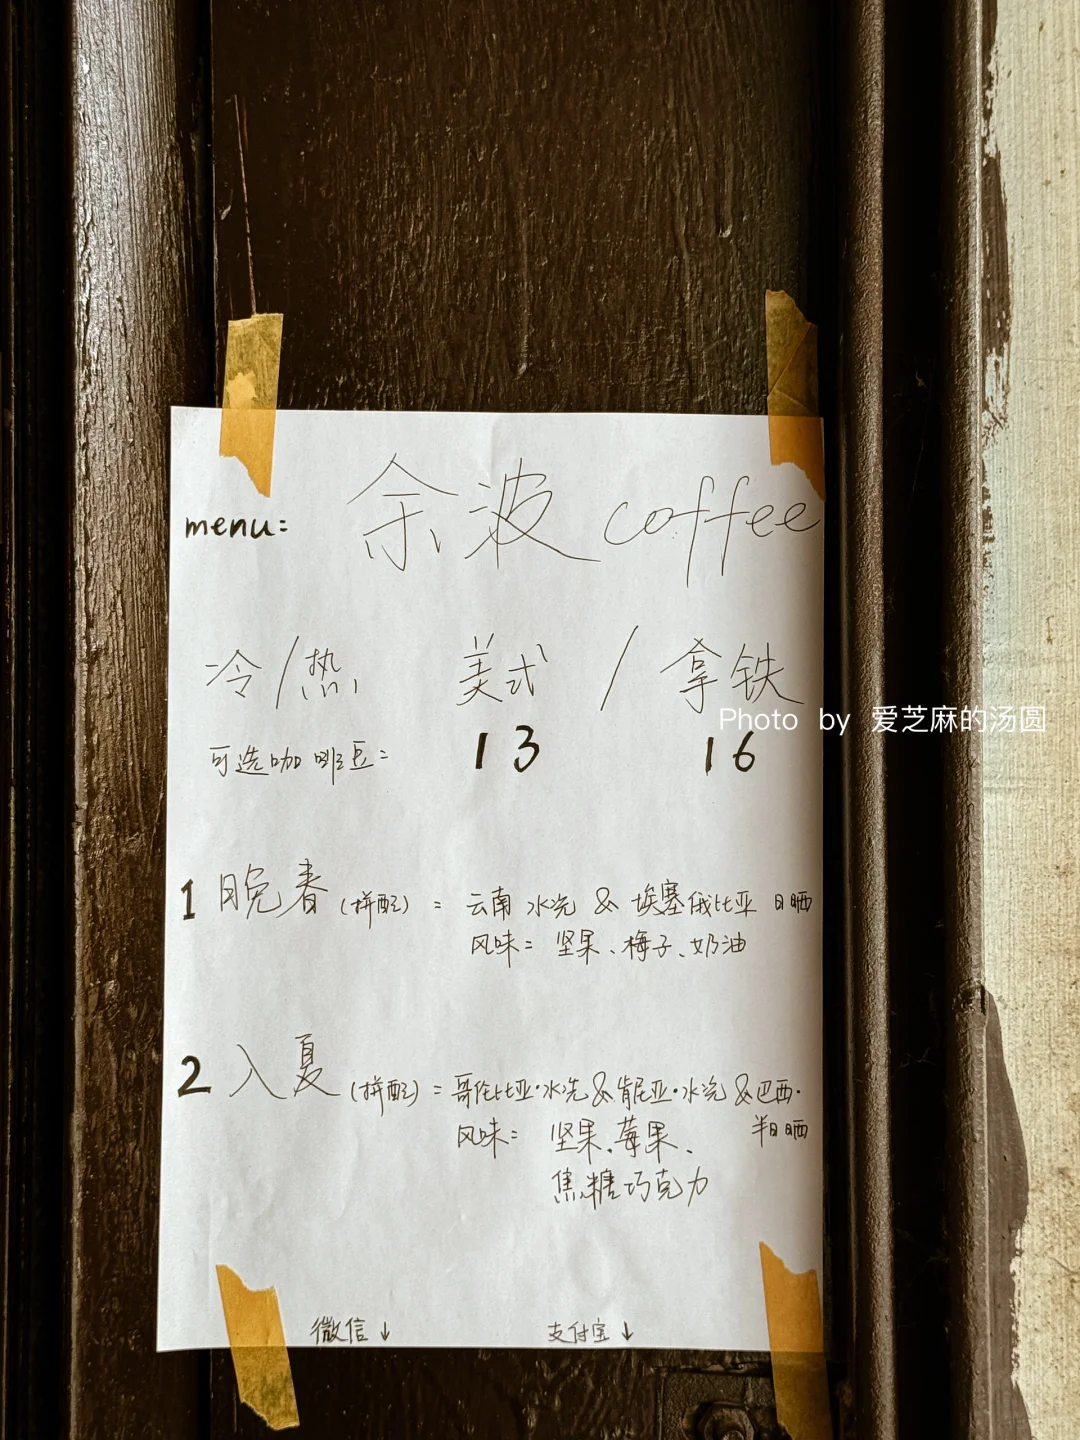 menu: 余波 coffee
冷/热 美式 / 拿铁
可选咖啡豆: 13 16
1 晚春(拼配) = 云南 水洗 & 埃塞俄比亚 日晒
风味: 坚果、梅子、奶油
2 入夏(拼配) = 哥伦比亚·水洗 & 肯尼亚·水洗 & 巴西·
半日晒
风味: 坚果、莓果、
焦糖巧克力
微信↓ 支付宝↓
Photo by 爱芝麻的汤圆